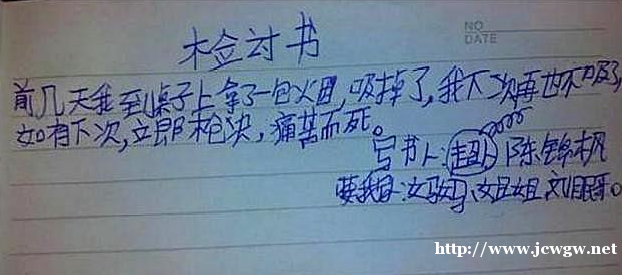 NO
DATE
检讨书
前几天我到桌子上拿了一包火因,吸掉了,我下次再也不吸了,
如有下次,立即枪决,痛苦而死。
写书人:陈锦枫
妈妈、姐姐
http://www.jcwgw.net